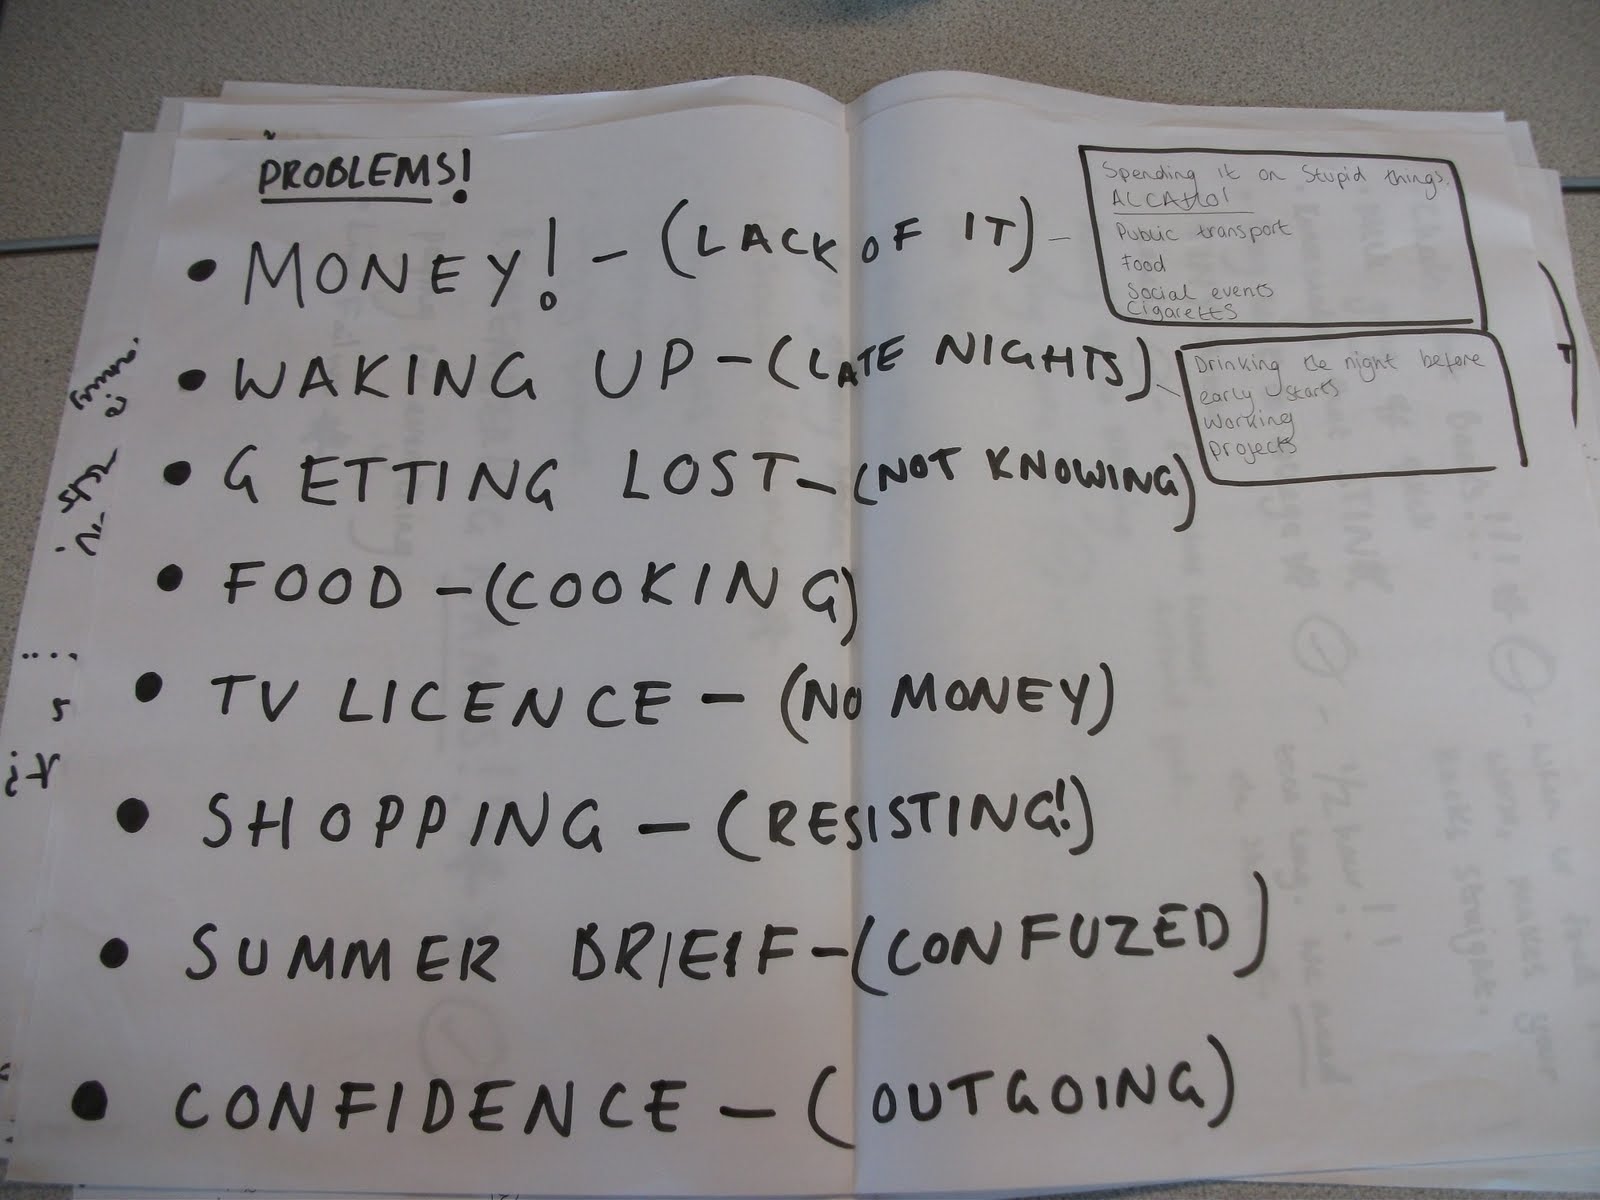 PROBLEMS!
• MONEY! - (LACK OF IT) -
Spending it on Stupid things.
ALCAHol
Public transport
Food
Social events
Cigaretts
• WAKING UP - (LATE NIGHTS) -
Drinking the night before
early starts
Working
Projects
• GETTING LOST - (NOT KNOWING)
• FOOD - (COOKING)
• TV LICENCE - (NO MONEY)
• SHOPPING - (RESISTING!)
• SUMMER BRIEIF - (CONFUZED)
• CONFIDENCE - (OUTGOING)